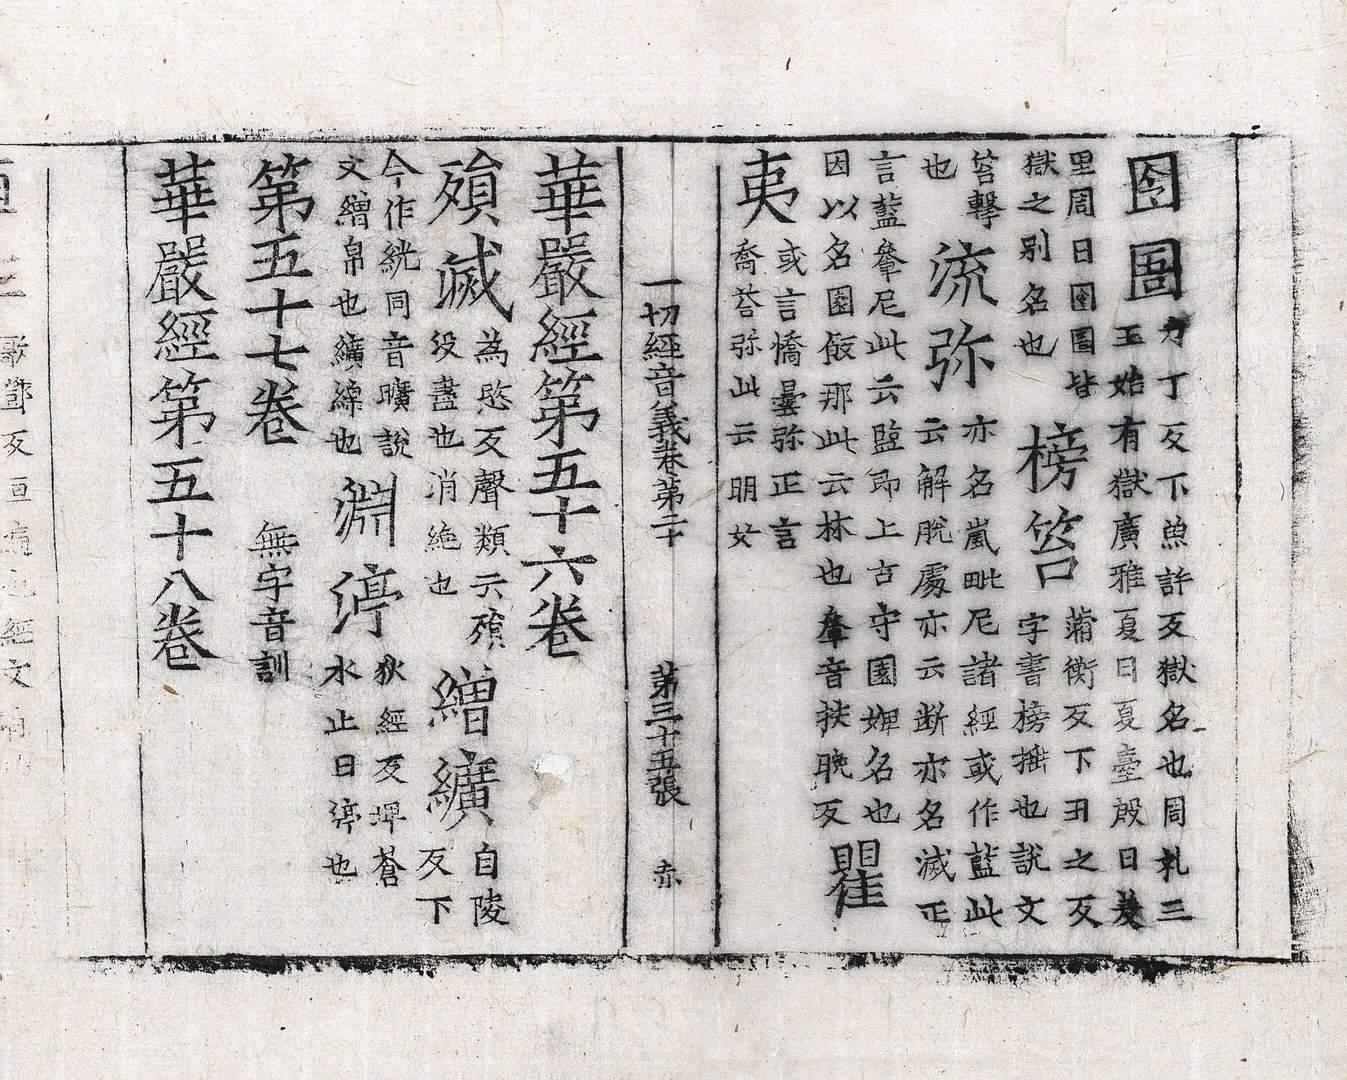 囹圄力丁反下魚許反獄名也周礼三
王始有獄廣雅夏曰夏臺殷曰羑
里周曰囹圄皆
獄之别名也
榜笞蒲衡反下丑之反
字書榜捶也說文
笞擊
也
流弥亦名嵐毗尼諸經或作藍此
云解脫處亦云断亦名滅正
言藍軬尼此云塩即上古守園婢名也
因以名園飯那此云林也軬音扶晚反
瞿
夷或言憍曇弥正言
喬荅弥此云明女
一切經音義卷第二十 第三十五張 赤
華嚴經第五十六卷
殞滅為愍反聲類云殞
役盡也消絶也
繒纊自陵
反下
今作絖同音曠說
文繒帛也纊綿也
淵渟狄經反埤蒼
水止曰渟也
第五十七卷 無字音訓
華嚴經第五十八卷